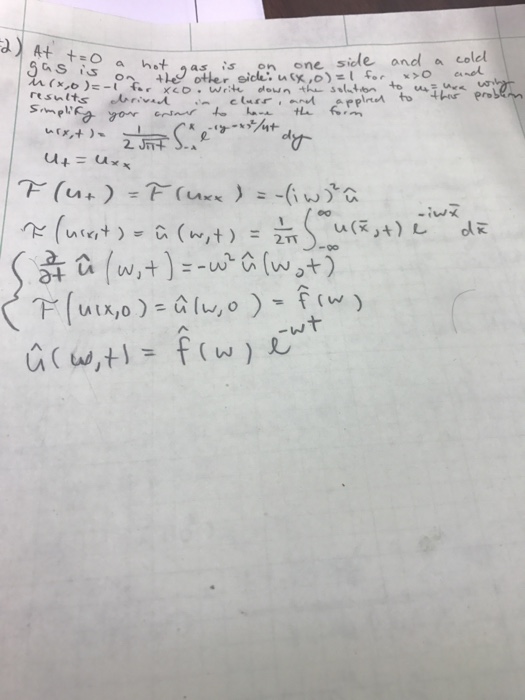 2) At t=0 a hot gas is on one side and a cold
gas is on the other side: u(x,0)=1 for x>0 and
u(x,0)=-1 for x<0. Write down the solution to u_t=u_xx using
results derived in class, and applied to this problem
simplify your answer to have the form
u(x,t)= 1/(2√πt) ∫_{-x}^{x} e^{-(y-x)²/4t} dy
u_t = u_xx
F(u_t) = F(u_xx) = -(iw)² û
F(u(x,t) = û(w,t) = 1/2π ∫_{-∞}^{∞} u(x̄,t) e^{-iwx̄} dx̄
{ ∂/∂t û(w,t) = -w² û(w,t)
F(u(x,0) = û(w,0) = f̂(w)
û(w,t) = f̂(w) e^{-wt}